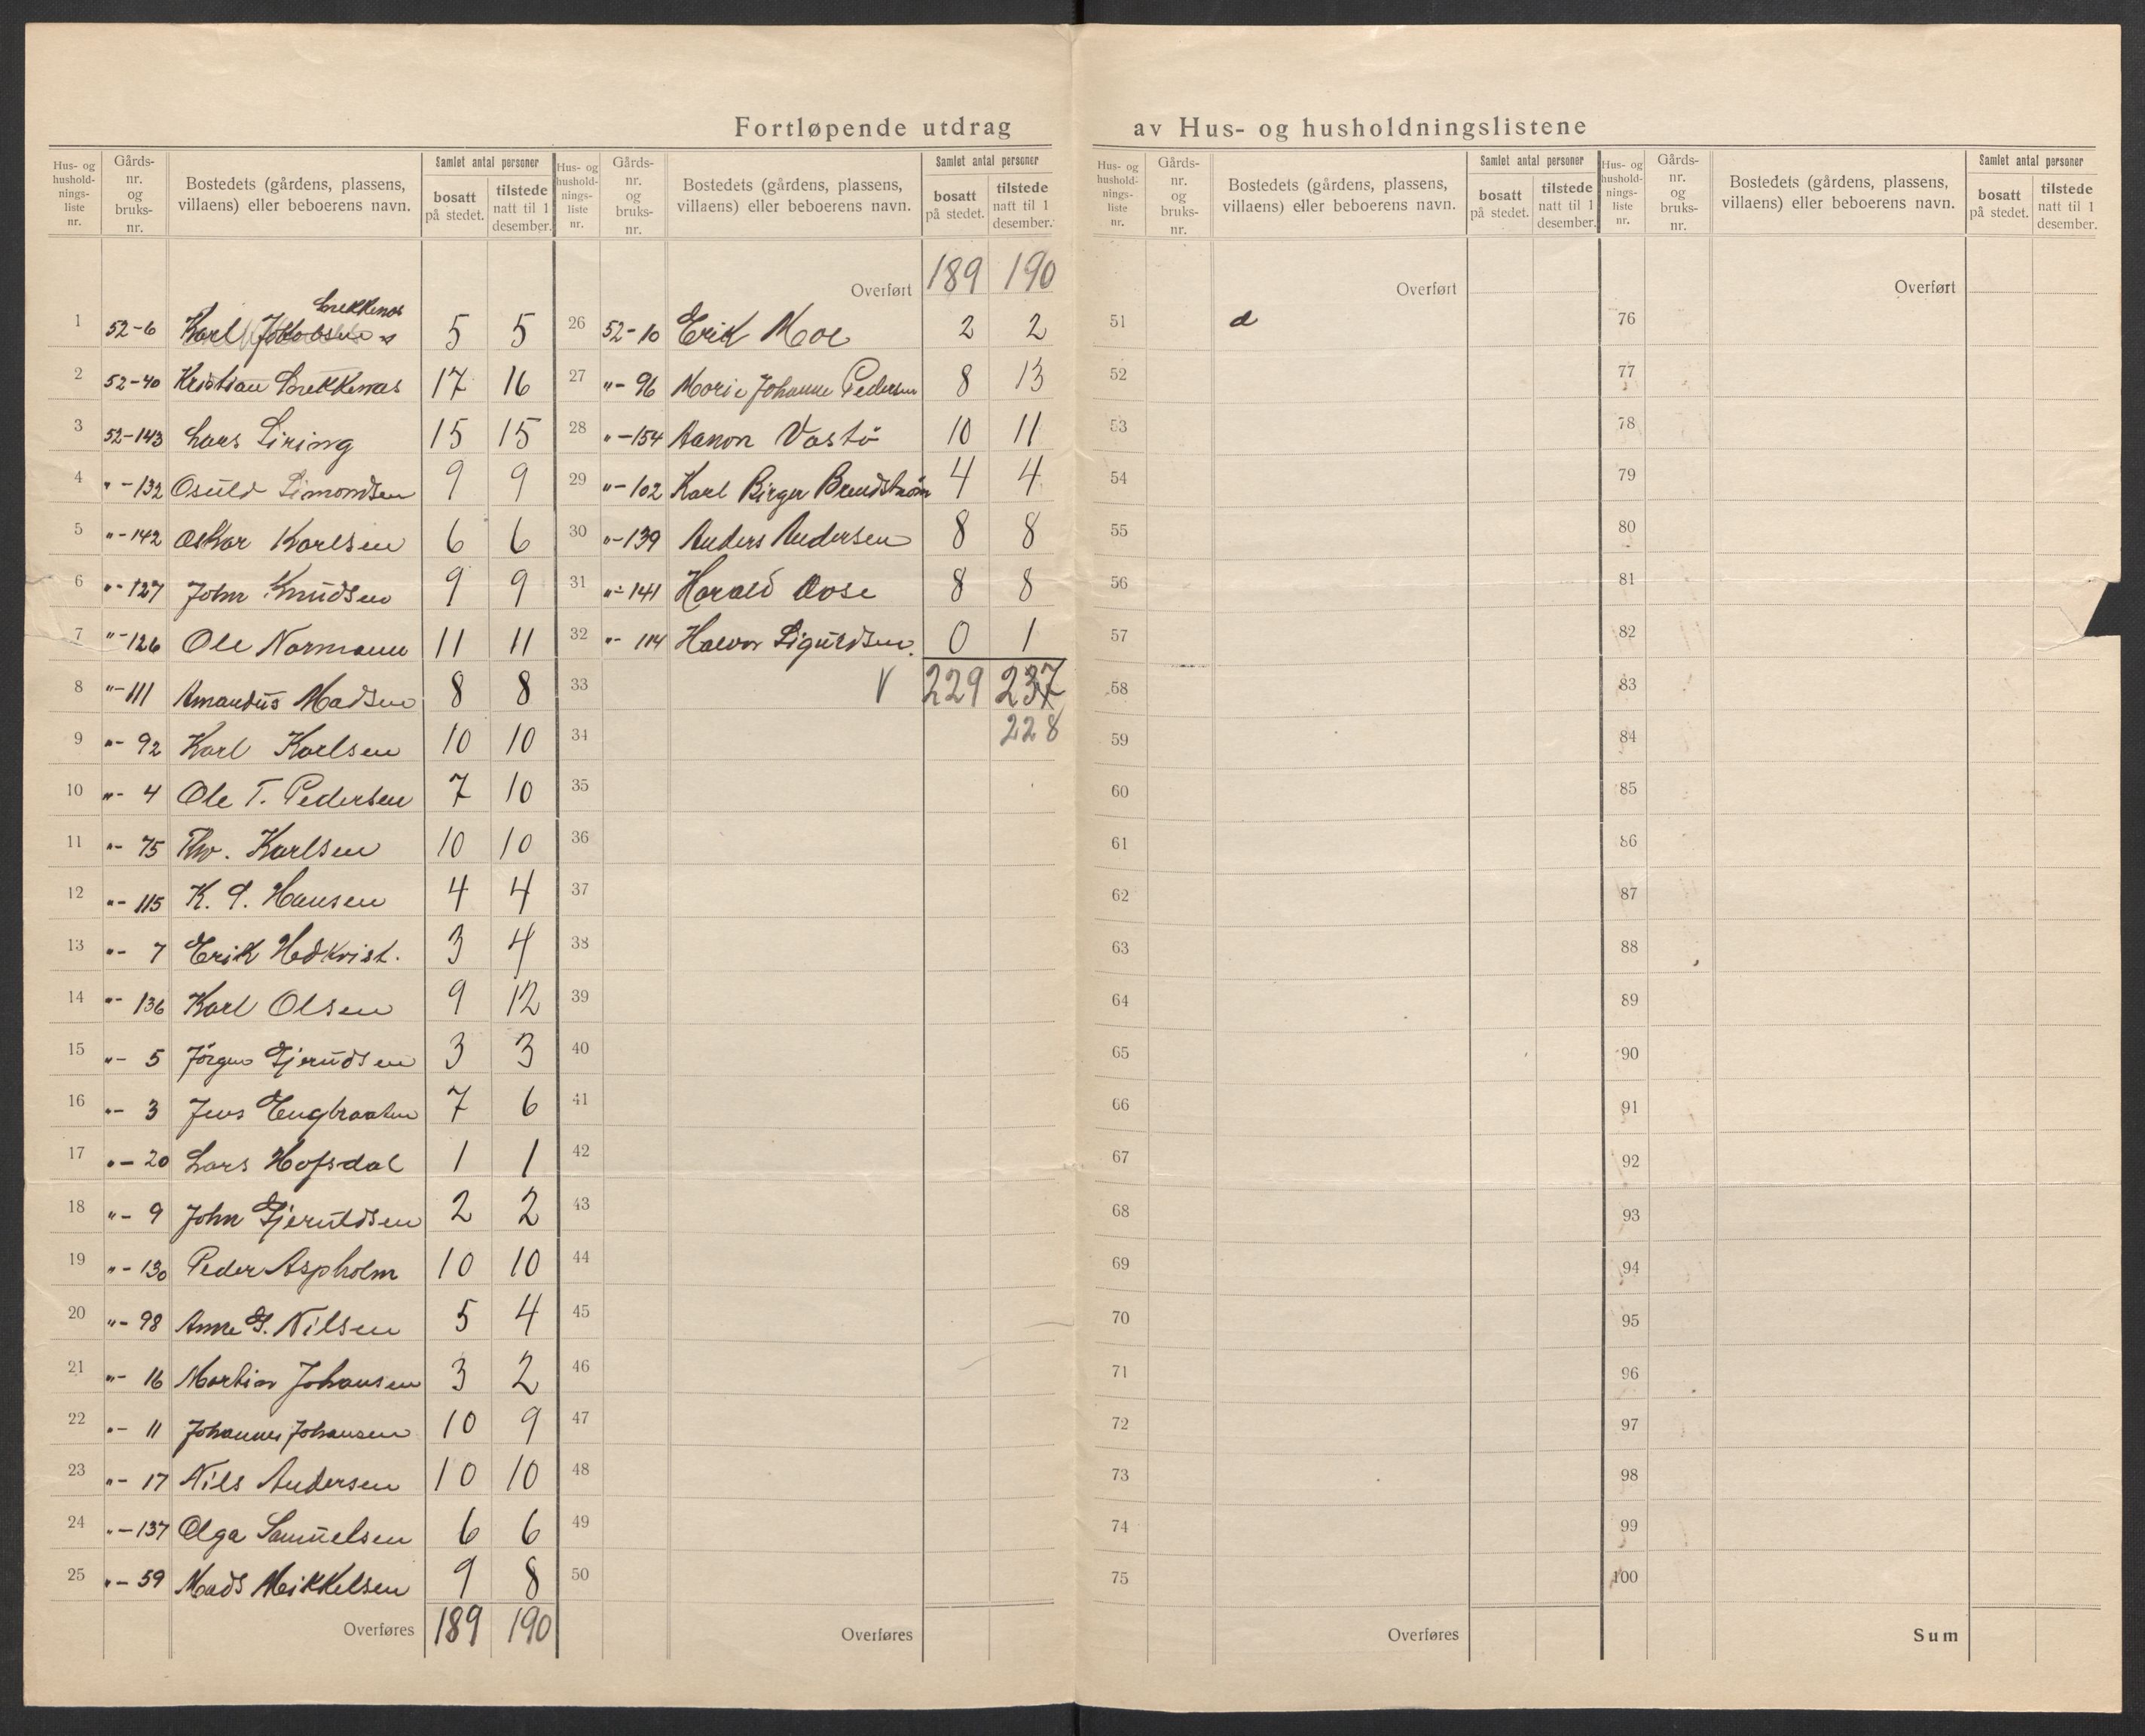 Fortløpende utdrag av Hus- og husholdningslistene
Hus- og husholdnings-liste nr. Gårds-nr. og bruks-nr. Bostedets (gårdens, plassens, villaens) eller beboerens navn. Samlet antal personer bosatt på stedet. tilstede natt til 1 desember.
Hus- og husholdnings-liste nr. Gårds-nr. og bruks-nr. Bostedets (gårdens, plassens, villaens) eller beboerens navn. Samlet antal personer bosatt på stedet. tilstede natt til 1 desember.
Hus- og husholdnings-liste nr. Gårds-nr. og bruks-nr. Bostedets (gårdens, plassens, villaens) eller beboerens navn. Samlet antal personer bosatt på stedet. tilstede natt til 1 desember.
Hus- og husholdnings-liste nr. Gårds-nr. og bruks-nr. Bostedets (gårdens, plassens, villaens) eller beboerens navn. Samlet antal personer bosatt på stedet. tilstede natt til 1 desember.
1 52-6 Karl 5 5
2 52-40 Kristian 17 16
3 52-143 Lars Siring 15 15
4 " -132 Osuld Simondsen 9 9
5 "-142 Oskar Karlsen 6 6
6 "-127 John Knudsen 9 9
7 "-126 Ole Normann 11 11
8 "-111 Amandus Madsen 8 8
9 "- 92 Karl Karlsen 10 10
10 "- 4 Ole T. Pedersen 7 10
11 "- 75 Thv. Karlsen 10 10
12 "- 115 K. P. Hansen 4 4
13 "- 7 Erik Hedkvist. 3 4
14 "- 136 Karl Olsen 9 12
15 "- 5 Jörgen Gjerudsen 3 3
16 "- 3 Jens Engbraaten 7 6
17 "- 20 Lars Hofsdal 1 1
18 "- 9 John Gjeruldsen 2 2
19 "- 130 Peder Aspholm 10 10
20 "- 98 Anne G. Nilsen 5 4
21 "- 16 Martin Johansen 3 2
22 "- 11 Johannes Johansen 10 9
23 "- 17 Nils Andersen 10 10
24 "-137 Olga Samuelsen 6 6
25 "- 59 Mads Mikkelsen 9 8
Overføres 189 190
Overført 189 190
26 52-10 Erik Moe 2 2
27 "- 96 Marie Johanne Pedersen 8 13
28 "-154 Aanon Vastö 10 11
29 "-102 Karl Birger Brendstrøm 4 4
30 "-139 Anders Andersen 8 8
31 "-141 Harald Aase 8 8
32 "- 114 Halvor Sigurdsen. 0 1
33 V 229 237
34 228
35
36
37
38
39
40
41
42
43
44
45
46
47
48
49
50
Overføres
Overført
51 d
52
53
54
55
56
57
58
59
60
61
62
63
64
65
66
67
68
69
70
71
72
73
74
75
Overføres
Overført
76
77
78
79
80
81
82
83
84
85
86
87
88
89
90
91
92
93
94
95
96
97
98
99
100
Sum